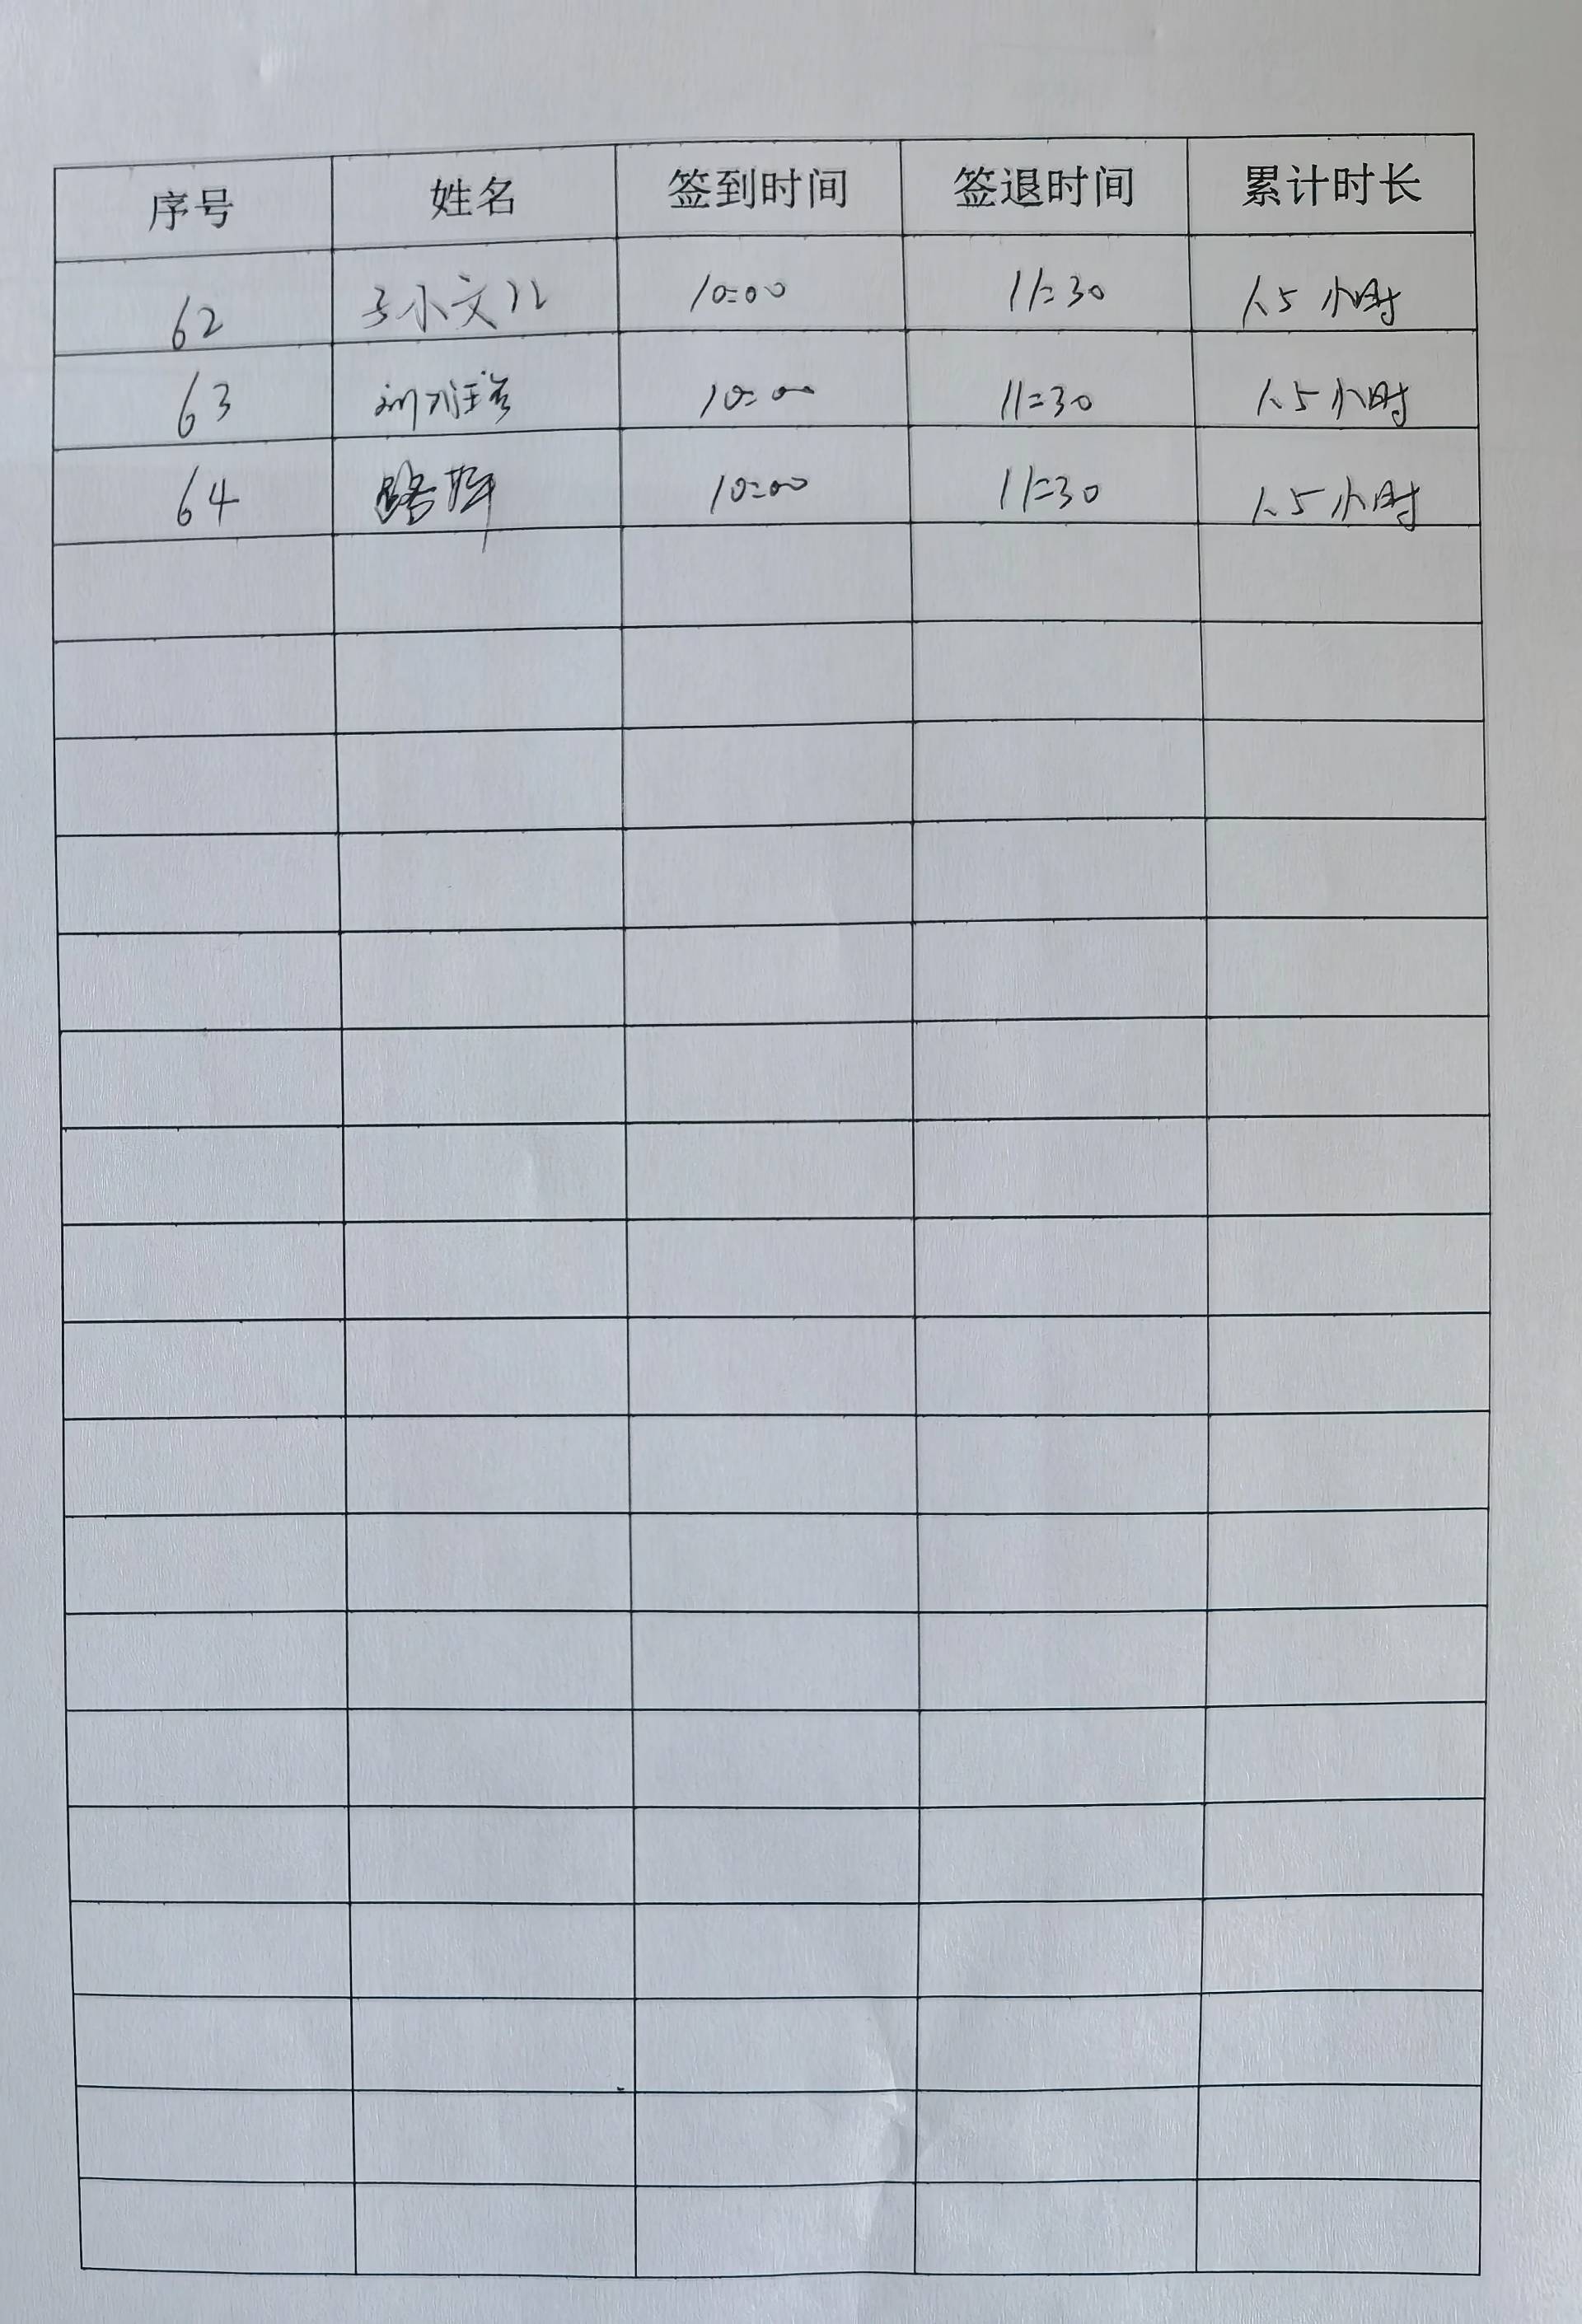 序号 姓名 签到时间 签退时间 累计时长
62 10:00 11:30 1.5小时
63 10:00 11:30 1.5小时
64 路 10:00 11:30 1.5小时